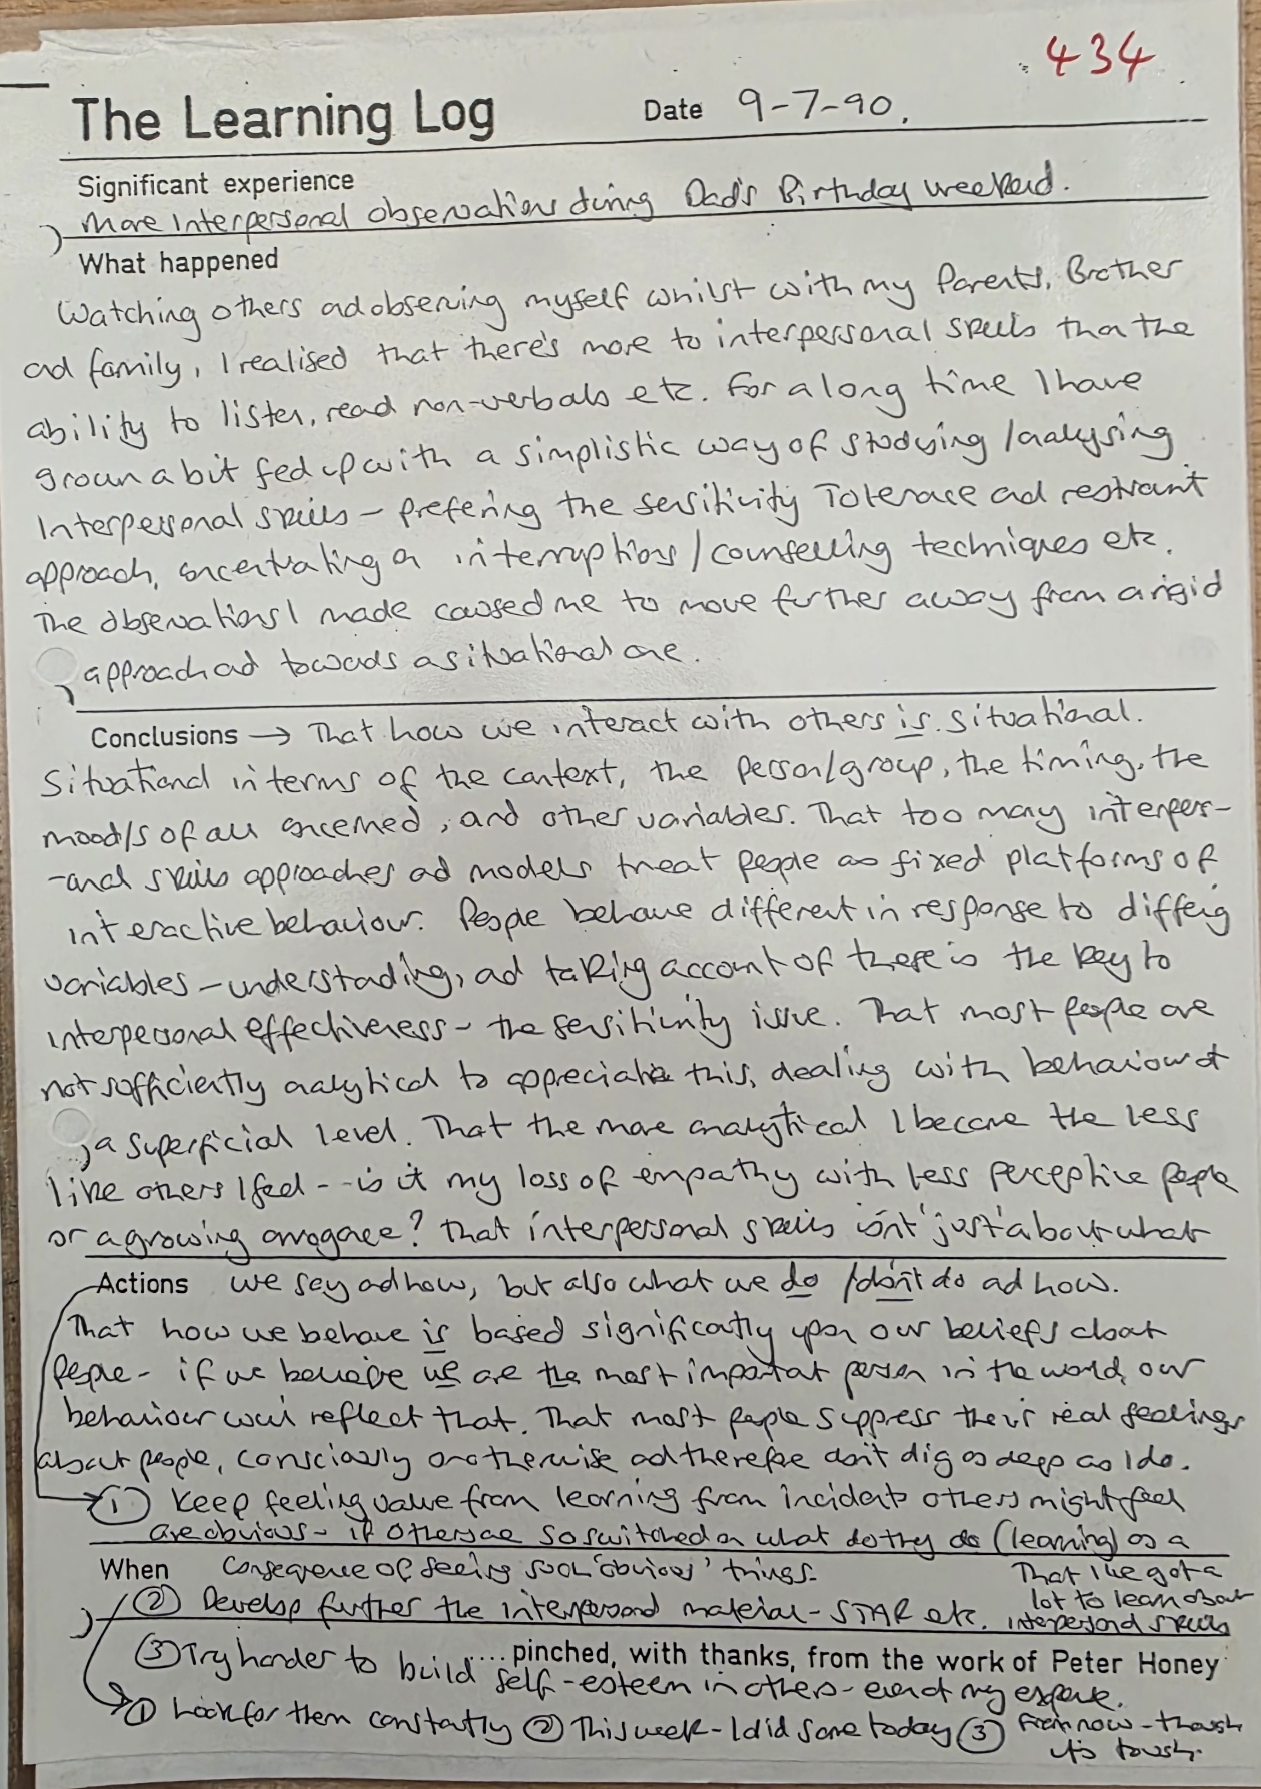 434
The Learning Log Date 9-7-90.
Significant experience
More Interpersonal observations during Dad's Birthday weekend.
What happened
Watching others and observing myself whilst with my Parents, Brother
and family, I realised that there's more to interpersonal skills than the
ability to listen, read non-verbals etc. For a long time I have
grown a bit fed up with a simplistic way of studying/analysing
Interpersonal skills - prefering the sensitivity Tolerance and restraint
approach, concentrating on interruptions/counselling techniques etc.
The observations I made caused me to move further away from a rigid
approach and towards a situational one.
Conclusions → That how we interact with others is situational.
Situational in terms of the context, the person/group, the timing, the
mood/s of all concerned, and other variables. That too many interpers-
-onal skills approaches and models treat people as fixed platforms of
interactive behaviour. People behave different in response to differing
variables - understanding, and taking account of these is the key to
interpersonal effectiveness - the sensitivity issue. That most people are
not sufficiently analytical to appreciate this, dealing with behaviour at
a superficial level. That the more analytical I become the less
like others I feel -- is it my loss of empathy with less perceptive people
or a growing arrogance? That interpersonal skills isn't 'just' about what
Actions we say and how, but also what we do / don't do and how.
That how we behave is based significantly upon our beliefs about
People - if we believe we are the most important person in the world, our
behaviour will reflect that. That most people suppress their real feelings
about people, consciously or otherwise and therefore don't dig as deep as I do.
① Keep feeling value from learning from incidents others might feel
are obvious - if others are so switched on what do they do (learning) as a
When consequence of seeing such 'obvious' things. That I've got a
② Develop further the interpersonal material - STAR etc. lot to learn about
interpersonal skills
③ Try harder to build self-esteem in others - even at my expense.
.... pinched, with thanks, from the work of Peter Honey
① Look for them constantly ② This week - I did some today ③ From now - though
it's tough.